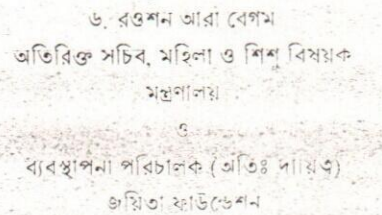 ৬. রওশন আরা বেগম
অতিরিক্ত সচিব, মহিলা ও শিশু বিষয়ক
মন্ত্রণালয়
ও
ব্যবস্থাপনা পরিচালক (অতিঃ দায়িত্ব)
জয়িতা ফাউন্ডেশন